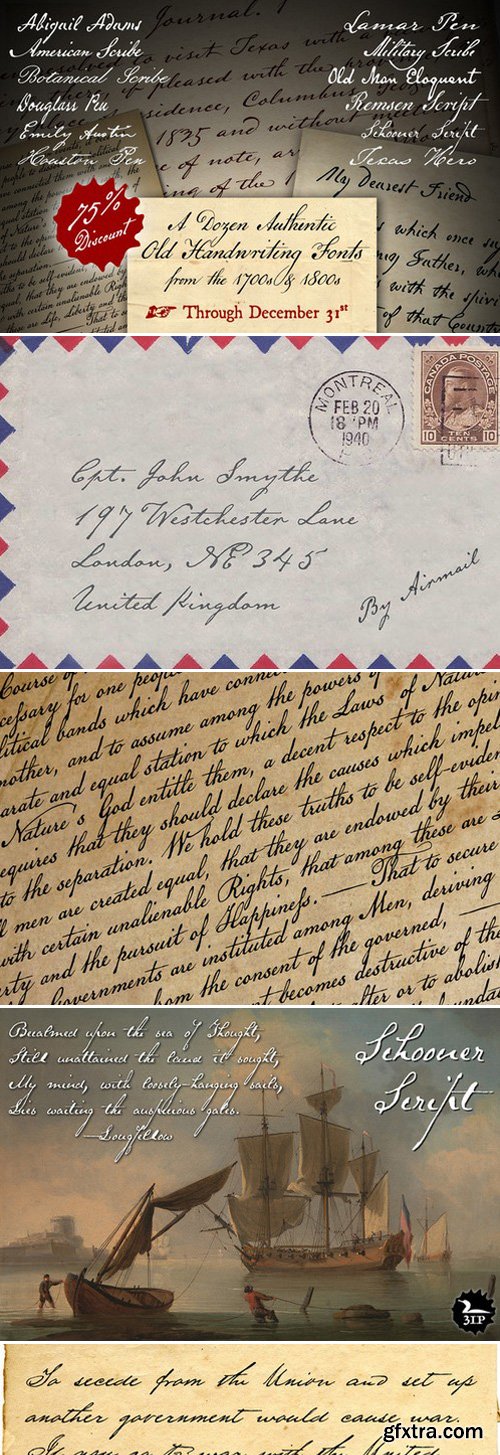 Journal.
resolved to visit Texas with a
if pleased with the
residence, Columbus,
1835 and without
of note,
of the
Abigail Adams
American Scribe
Botanical Scribe
Douglass Pen
Emily Austin
Houston Pen
Lamar Pen
Military Scribe
Old Man Eloquent
Remsen Script
Schooner Script
Texas Hero
75%
Discount
A Dozen Authentic
Old Handwriting Fonts
from the 1700s & 1800s
☞ Through December 31st
My Dearest Friend
which once
Father, wh
with the spir
of that Count
MONTREAL
FEB 20
18 PM
1940
CANADA POSTAGE
10 TEN CENTS 10
Cpt. John Smythe
197 Westchester Lane
London, NE 345
United Kingdom
By Airmail
Course of
cessary for one people
litical bands which have connec
nother, and to assume among the powers of
arate and equal station to which the Laws of Natur
Nature's God entitle them, a decent respect to the opin
equires that they should declare the causes which impel
to the separation. We hold these truths to be self-eviden
ll men are created equal, that they are endowed by their
with certain unalienable Rights, that among these are L
erty and the pursuit of Happiness. — That to secure
Governments are instituted among Men, deriving
rom the consent of the governed, —
nt becomes destructive of the
alter or to abolish
Becalmed upon the sea of Thought,
Still unattained the land it sought,
My mind, with loosely-hanging sails,
Lies waiting the auspicious gales.
—Longfellow
Schooner
Script
3IP
To secede from the Union and set up
another government would cause war.
If you go to war with the United
gfxtra.com